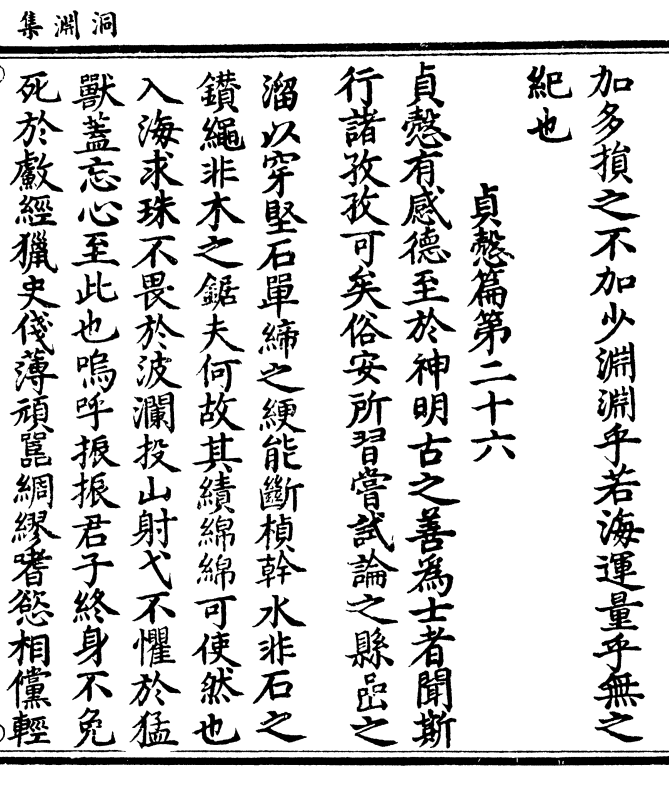 洞淵集
加多損之不加少淵淵乎若海運量乎無之
紀也
貞慤篇第二十六
貞慤有感德至於神明古之善為士者聞斯
行諸孜孜可矣俗安所習嘗試論之縣嵒之
溜以穿堅石單締之綆能斷楨幹水非石之
鑚繩非木之鋸夫何故其績綿綿可使然也
入海求珠不畏於波瀾投山射弋不懼於猛
獸蓋忘心至此也嗚呼振振君子終身不免
死於獻經獵史俴薄頑嚚綢繆嗜慾相儻輕